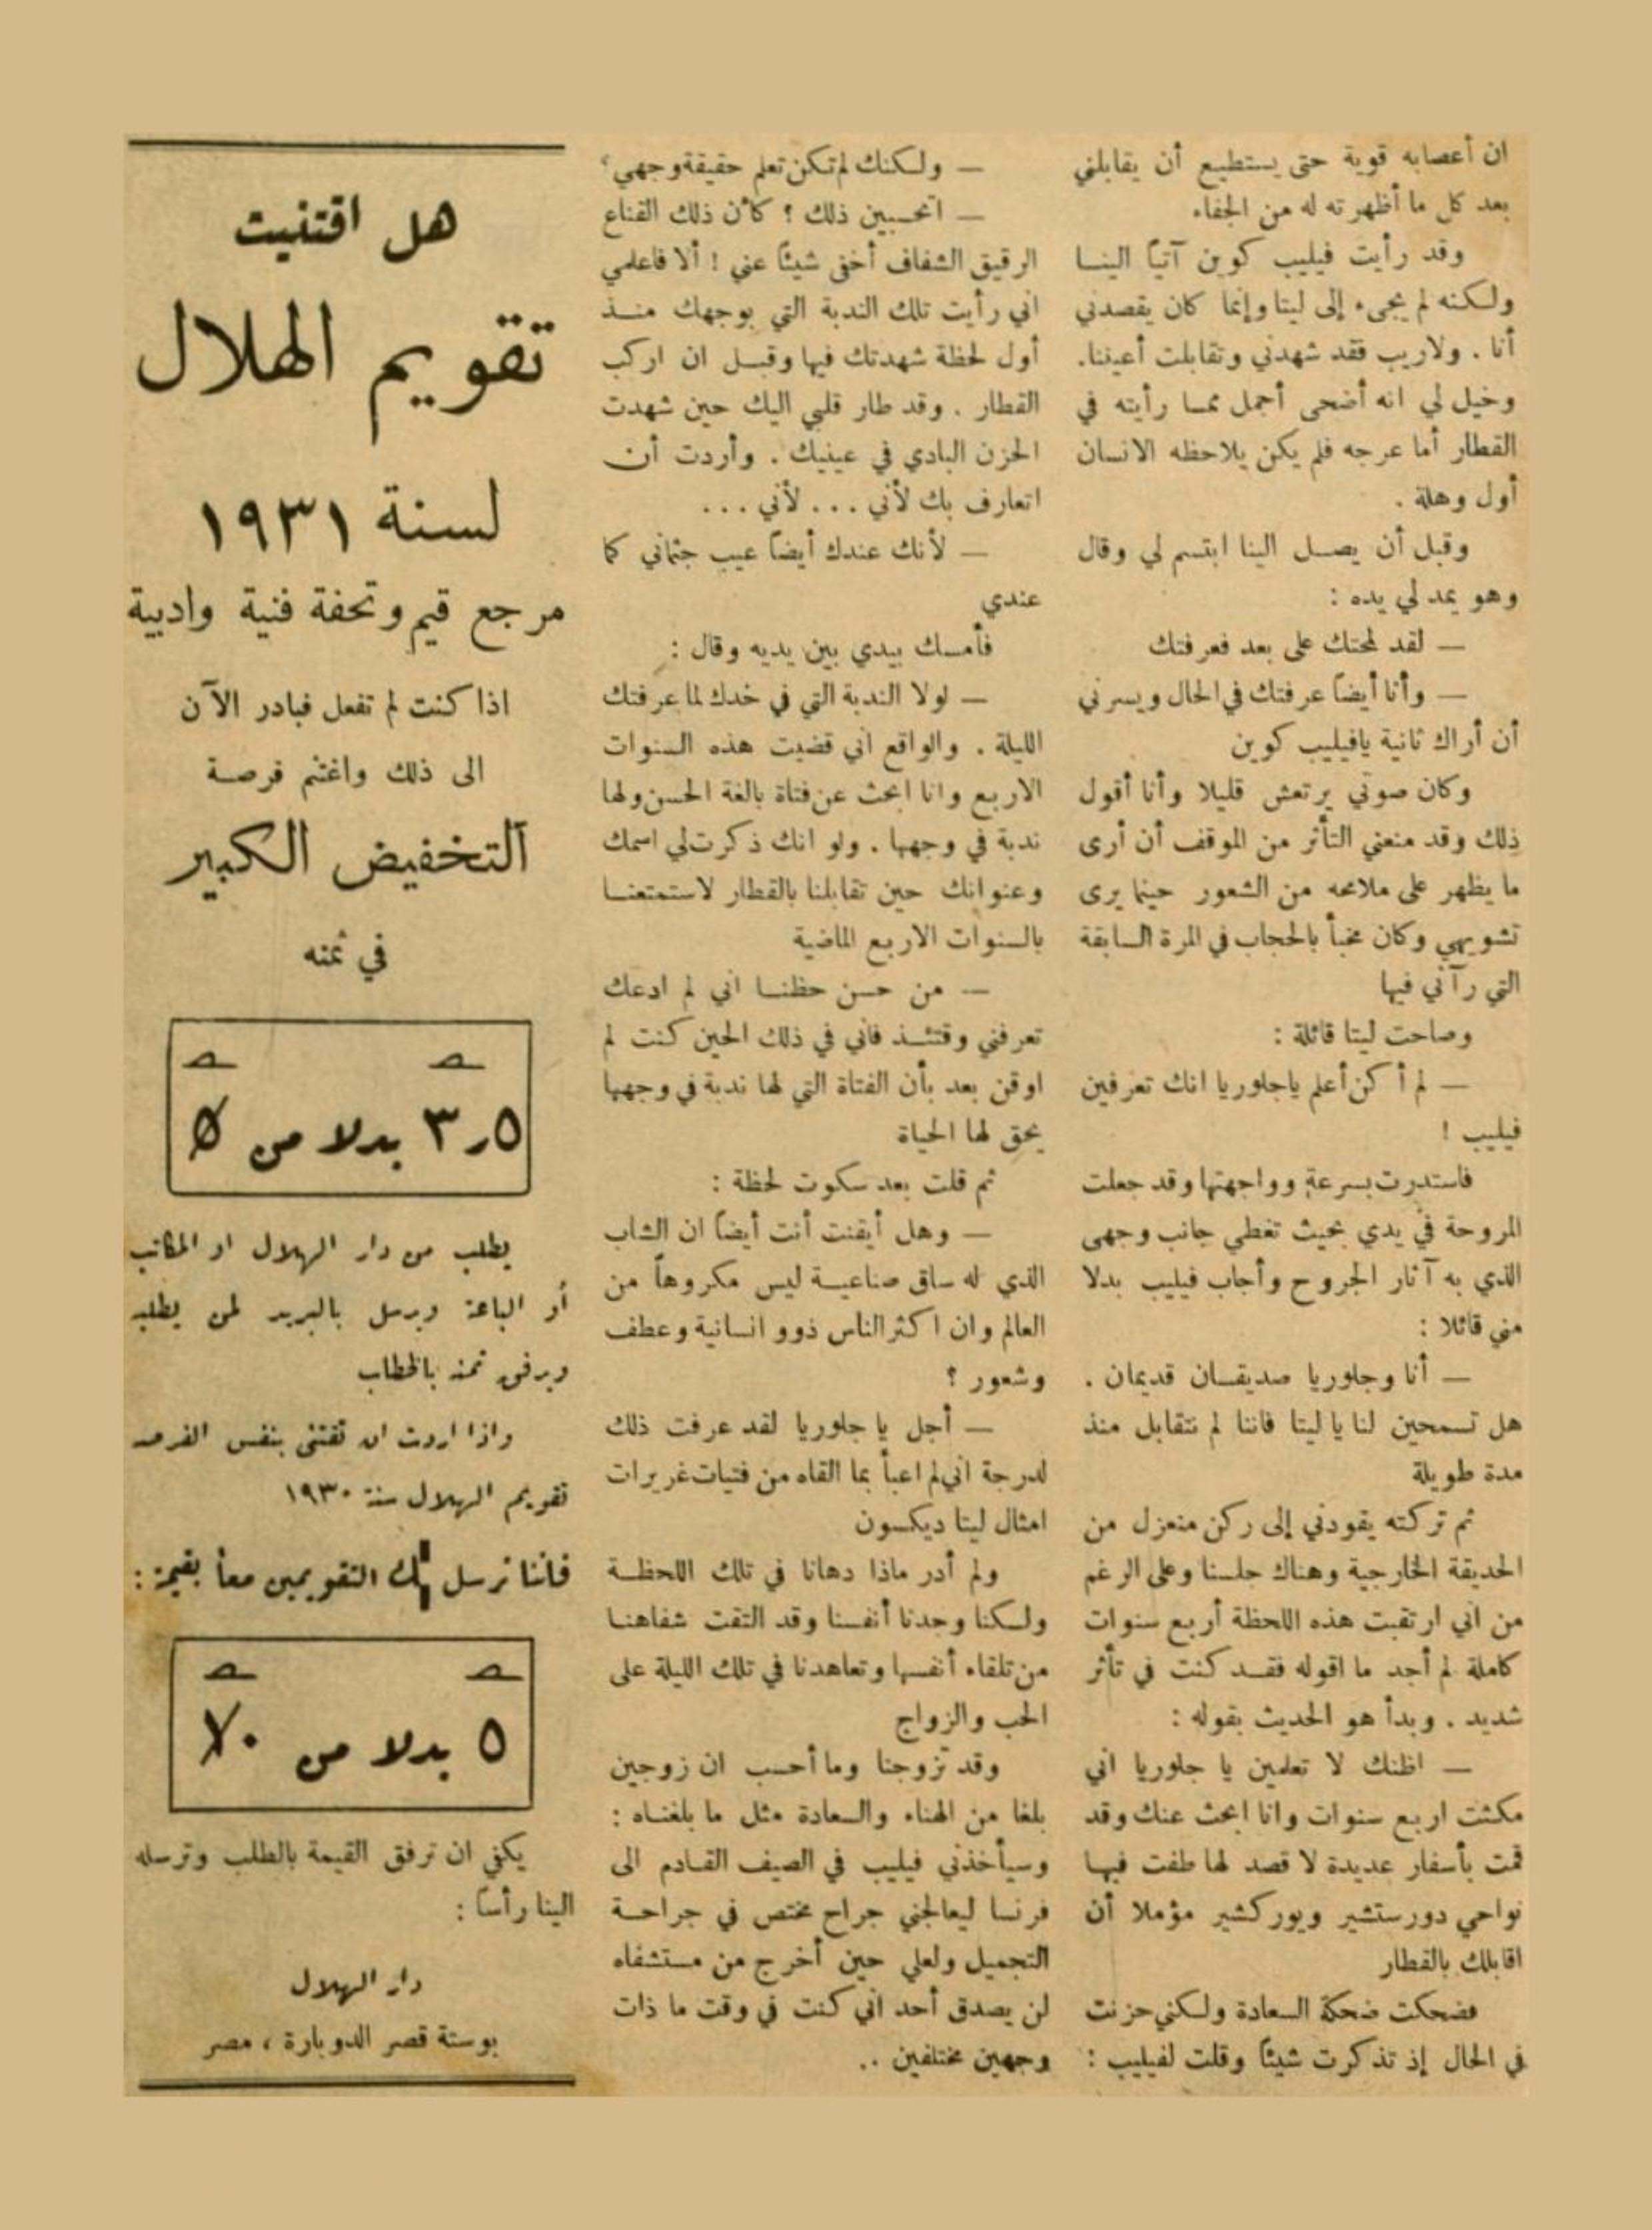 ان أعصابه قوية حتى يستطيع أن يقابلني
بعد كل ما أظهرته له من الجفاء
وقد رأيت فيليب كوين آتياً الينا
ولكنه لم يجىء إلى ليتا وإنما كان يقصدني
أنا . ولاريب فقد شهدني وتقابلت أعيننا.
وخيل لي انه أضحى أجمل مما رأيته في
القطار أما عرجه فلم يكن يلاحظه الانسان
أول وهلة .
وقبل أن يصل الينا ابتسم لي وقال
وهو يمد لي يده :
— لقد لمحتك على بعد فعرفتك
— وأنا أيضاً عرفتك في الحال ويسرني
أن أراك ثانية يافيليب كوين
وكان صوتي يرتعش قليلا وأنا أقول
ذلك وقد منعني التأثر من الموقف أن أرى
ما يظهر على ملامحه من الشعور حينما يرى
تشويهي وكان مخبأ بالحجاب في المرة السابقة
التي رآني فيها
وصاحت ليتا قائلة :
— لم أكن أعلم ياجلوريا انك تعرفين
فيليب !
فاستدرت بسرعة وواجهتها وقد جعلت
المروحة في يدي بحيث تغطي جانب وجهي
الذي به آثار الجروح وأجاب فيليب بدلا
مني قائلا :
— أنا وجلوريا صديقان قديمان .
هل تسمحين لنا يا ليتا فاننا لم نتقابل منذ
مدة طويلة
ثم تركته يقودني إلى ركن منعزل من
الحديقة الخارجية وهناك جلسنا وعلى الرغم
من اني ارتقبت هذه اللحظة أربع سنوات
كاملة لم أجد ما اقوله فقد كنت في تأثر
شديد . وبدأ هو الحديث بقوله :
— اظنك لا تعلمين يا جلوريا اني
مكثت اربع سنوات وانا ابحث عنك وقد
قمت بأسفار عديدة لا قصد لها طفت فيها
نواحي دورستشير ويوركشير مؤملا أن
اقابلك بالقطار
فضحكت ضحكة السعادة ولكني حزنت
في الحال إذ تذكرت شيئاً وقلت لفيليب :
— ولكنك لم تكن تعلم حقيقة وجهي؟
— اتحسبين ذلك ؟ كأن ذلك القناع
الرقيق الشفاف أخفى شيئاً عني ! ألا فاعلمي
اني رأيت تلك الندبة التي بوجهك منذ
أول لحظة شهدتك فيها وقبل ان اركب
القطار . وقد طار قلبي اليك حين شهدت
الحزن البادي في عينيك . وأردت أن
اتعارف بك لأني ... لأني ...
— لأنك عندك أيضاً عيب جثماني كما
عندي
فأمسك بيدي بين يديه وقال :
— لولا الندبة التي في خدك لما عرفتك
الليلة . والواقع اني قضيت هذه السنوات
الاربع وانا ابحث عن فتاة بالغة الحسن ولها
ندبة في وجهها . ولو انك ذكرت لي اسمك
وعنوانك حين تقابلنا بالقطار لاستمتعنا
بالسنوات الاربع الماضية
— من حسن حظنا اني لم ادعك
تعرفني وقتئذ فاني في ذلك الحين كنت لم
اوقن بعد بأن الفتاة التي لها ندبة في وجهها
يحق لها الحياة
ثم قلت بعد سكوت لحظة :
— وهل أيقنت أنت أيضاً ان الشاب
الذي له ساق صناعية ليس مكروهاً من
العالم وان اكثر الناس ذوو انسانية وعطف
وشعور ؟
— أجل يا جلوريا لقد عرفت ذلك
لدرجة اني لم اعبأ بما القاه من فتيات غريرات
امثال ليتا ديكسون
ولم أدر ماذا دهانا في تلك اللحظة
ولكنا وجدنا أنفسنا وقد التقت شفاهنا
من تلقاء أنفسها وتعاهدنا في تلك الليلة على
الحب والزواج
وقد تزوجنا وما أحسب ان زوجين
بلغا من الهناء والسعادة مثل ما بلغناه :
وسيأخذني فيليب في الصيف القادم الى
فرنسا ليعالجني جراح مختص في جراحة
التجميل ولعلي حين أخرج من مستشفاه
لن يصدق أحد اني كنت في وقت ما ذات
وجهين مختلفين ..
هل اقتنيت
تقويم الهلال
لسنة ١٩٣١
مرجع قيم وتحفة فنية وادبية
اذا كنت لم تفعل فبادر الآن
الى ذلك واغتنم فرصة
التخفيض الكبير
في ثمنه
صـ صـ
٣٫٥ بدلا من ٥
يطلب من دار الهلال او المكاتب
أو الباعة ويرسل بالبريد لمن يطلبه
ويرفق ثمنه بالخطاب
واذا اردت ان تقتني بنفس الفرصة
تقويم الهلال سنة ١٩٣٠
فاننا نرسل لك التقويمين معاً بقيمة :
صـ صـ
٥ بدلا من ١٠
يكفي ان ترفق القيمة بالطلب وترسله
الينا رأساً :
دار الهلال
بوستة قصر الدوبارة ، مصر